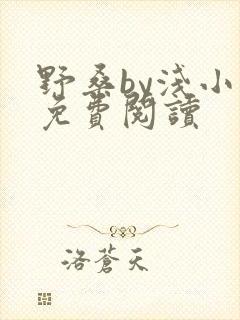 野桑by淺小
免費閱讀
洛蒼天